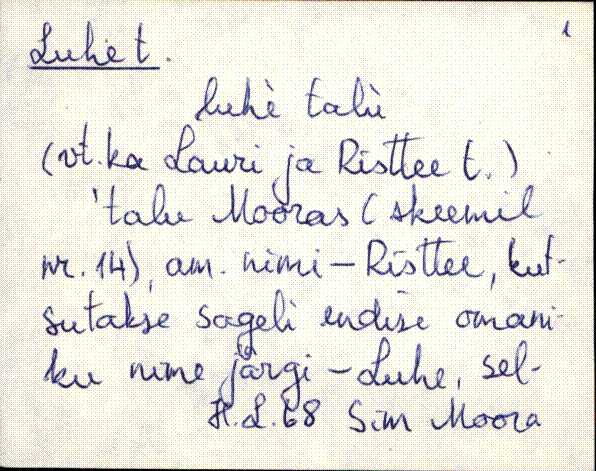 1
Luhe t.
luhè talù
(vt. ka Lauri ja Risttee t.)
'talu Mooras (skeemil
nr. 14), am. nimi - Risttee, kut-
sutakse sageli endise omani-
ku nime järgi - Luhe, sel-
H. L. 68 Sim Moora